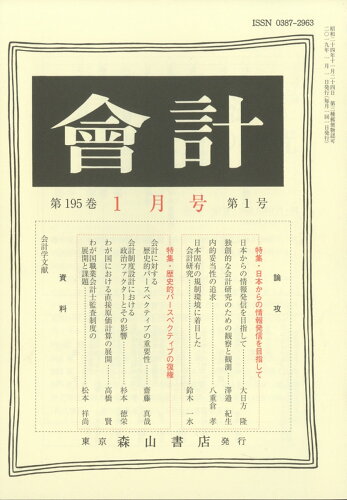 ISSN 0387-2963
昭和二十四年十一月二十四日 第三種郵便物認可
二〇一九年一月一日発行(毎月一回一日発行)
會計
第195巻 1月号 第1号
論攻
特集・日本からの情報発信を目指して
日本からの情報発信を目指して 大日方 隆
独創的な会計研究のための観察と観測 澤邉 紀生
内的妥当性の追求 八重倉 孝
日本固有の規制環境に着目した
会計研究 鈴木 一水
特集・歴史的パースペクティブの復権
会計に対する
歴史的パースペクティブの重要性 齋藤 真哉
会計制度設計における
政治ファクターとその影響 杉本 徳栄
わが国における直接原価計算の展開 高橋 賢
わが国職業会計士監査制度の
展開と課題 松本 祥尚
資料
会計学文献
東京 森山書店 発行